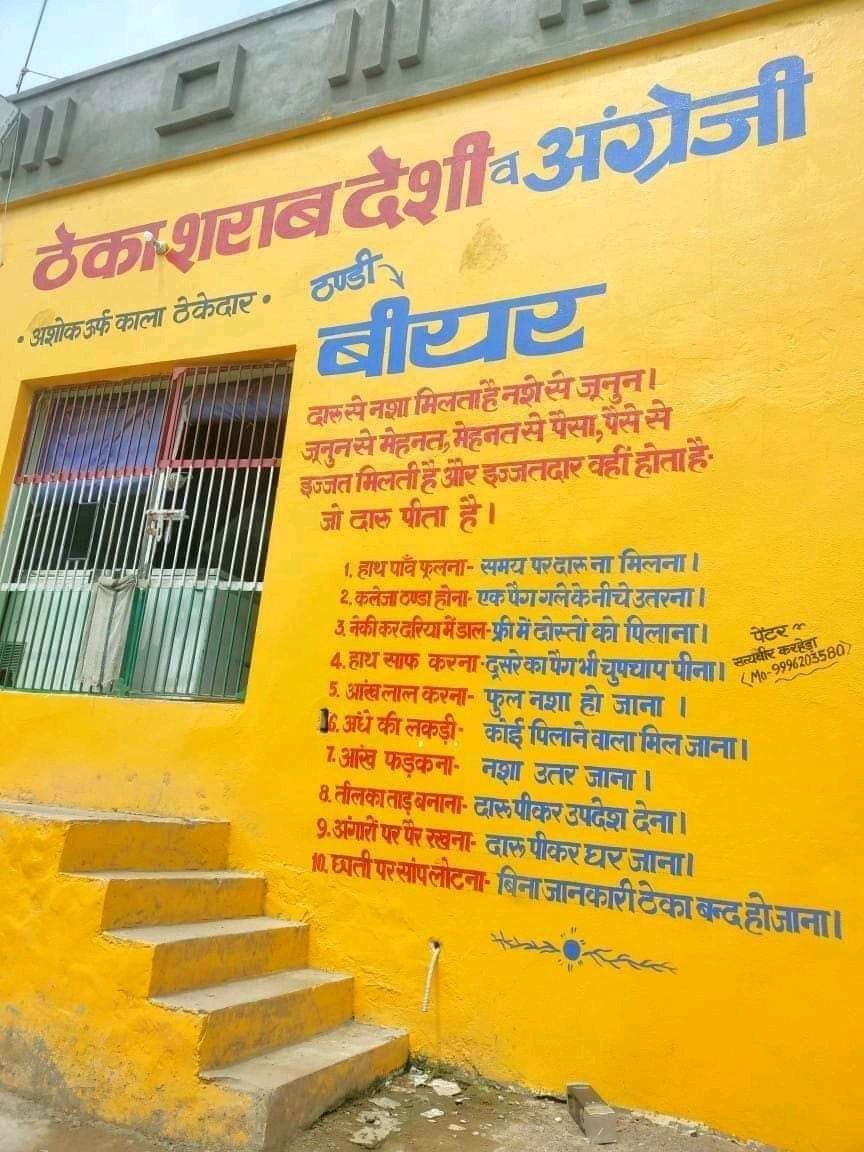 ठेका शराब देशी व अंग्रेजी
• अशोक उर्फ काला ठेकेदार •
ठण्डी
बीयर
दारू से नशा मिलता है नशे से जूनुन।
जूनुन से मेहनत, मेहनत से पैसा, पैसे से
इज्जत मिलती है और इज्जतदार वहीं होता है-
जो दारू पीता है।
1. हाथ पाँव फूलना- समय पर दारू ना मिलना।
2. कलेजा ठण्डा होना- एक पैग गले के नीचे उतरना।
3. नेकी कर दरिया में डाल- फ्री में दोस्तों को पिलाना।
4. हाथ साफ करना- दूसरे का पैग भी चुपचाप पीना।
5. आंख लाल करना- फुल नशा हो जाना ।
6. अंधे की लकड़ी- कोई पिलाने वाला मिल जाना।
7. आंख फड़कना- नशा उतर जाना ।
8. तील का ताड़ बनाना- दारू पीकर उपदेश देना।
9. अंगारों पर पैर रखना- दारू पीकर घर जाना।
10. छाती पर सांप लौटना- बिना जानकारी ठेका बन्द हो जाना।
पेंटर ~
सत्यबीर करहेड़ा
(Mo-9996203580)